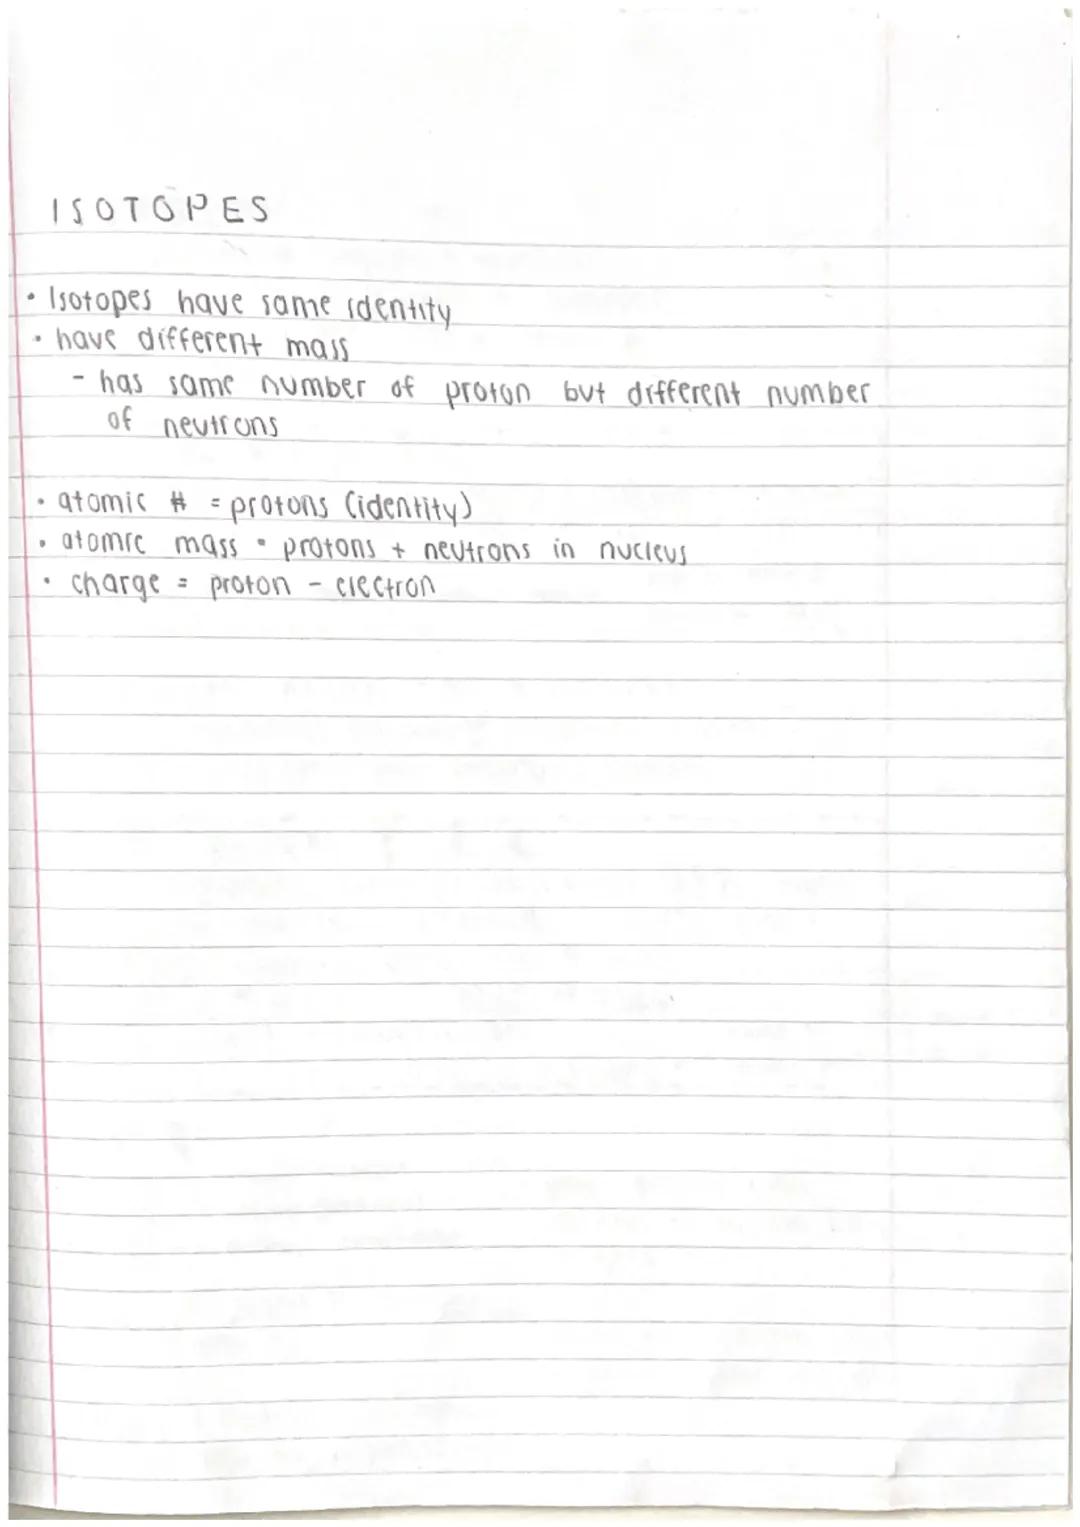 ISOTOPES
• Isotopes have same identity
• have different mass
- has same number of proton but different number
of neutrons
• atomic # = protons (identity)
• atomic mass = protons + neutrons in nucleus
• charge = proton - electron